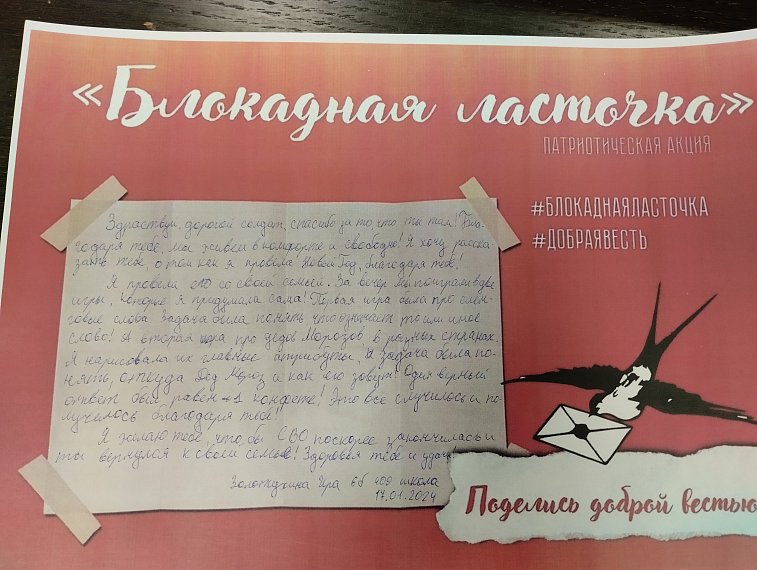 «Блокадная ласточка»
ПАТРИОТИЧЕСКАЯ АКЦИЯ
#БЛОКАДНАЯЛАСТОЧКА
#ДОБРАЯВЕСТЬ
Здраствуй, дорогой солдат, спасибо за то, что ты там! Бла-
годаря тебе, мы живем в комфорте и свободно! Я хочу расска
зать тебе, о том как я провела Новый Год, благодаря тебе!
Я провела его со своей семьей. За вечер мы поиграли в две
игры, которые я придумала сама! Первая игра была про слен-
говые слова. Задача была понять что означает то или иное
слово! А вторая игра про дедов Морозов в разных странах.
Я нарисовала их главные атрибуты, и задача была по-
нять, откуда Дед Мороз и как его зовут! Один верный
ответ был равен +1 конфете! Это все случилось и по-
лучилось благодаря тебе!
Я желаю тебе, что бы СВО поскорее закончилась и
ты вернулся к своей семье! Здоровья тебе и удачи!
Ира 6б 409 школа
17.01.2024
Поделись доброй вестью